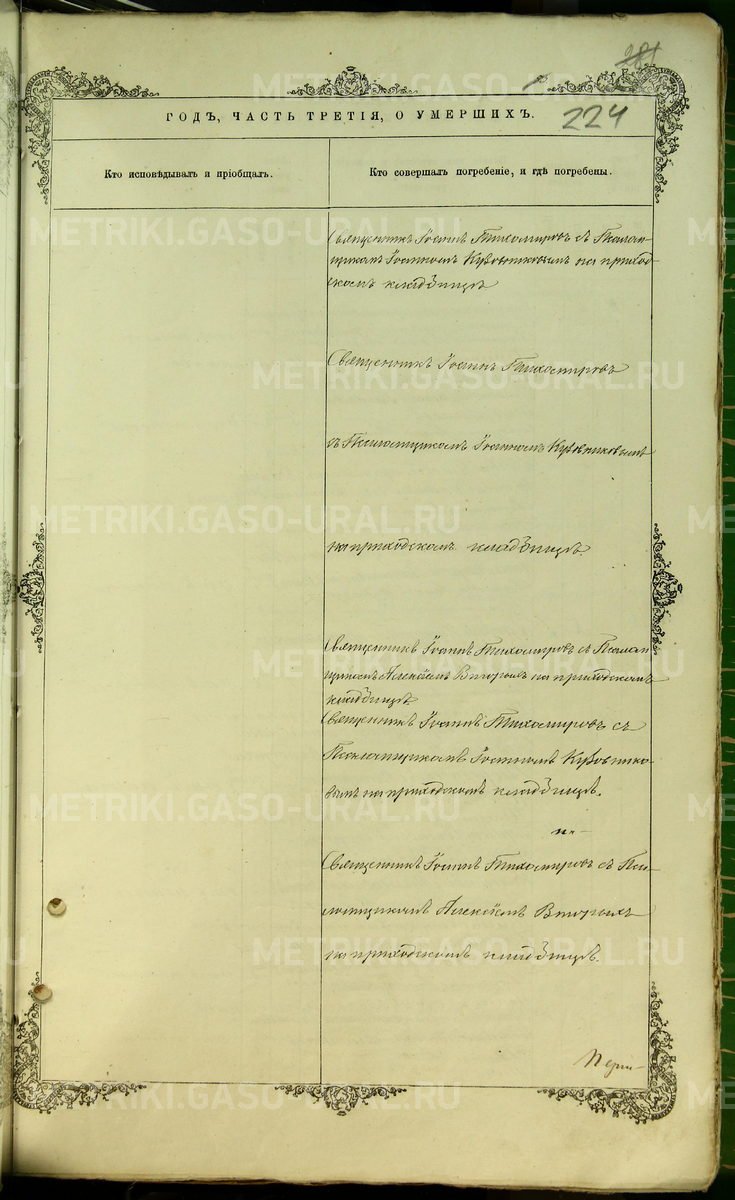 224
ГОДЪ, ЧАСТЬ ТРЕТІЯ, О УМЕРШИХЪ.
Кто исповѣдывалъ и пріобщалъ.
Кто совершалъ погребеніе, и гдѣ погребены.
Священникъ Іоаннъ Тихомировъ съ Псалом-
щикомъ Іоанномъ Кузовниковымъ на приход-
скомъ кладбищѣ
Священникъ Іоаннъ Тихомировъ
съ Псаломщикомъ Іоанномъ Кузовниковымъ
на приходскомъ кладбищѣ.
Священникъ Іоаннъ Тихомировъ съ Псалом
щикомъ Алексѣемъ Вторыхъ на приходскомъ
кладбищѣ
Священникъ Іоаннъ Тихомировъ съ
Псаломщикомъ Іоанномъ Кузовнико-
вымъ на приходскомъ кладбищѣ.
Священникъ Іоаннъ Тихомировъ съ Пса-
ломщикомъ Алексѣемъ Вторыхъ
на приходскомъ кладбищѣ.
METRIKI.GASO-URAL.RU